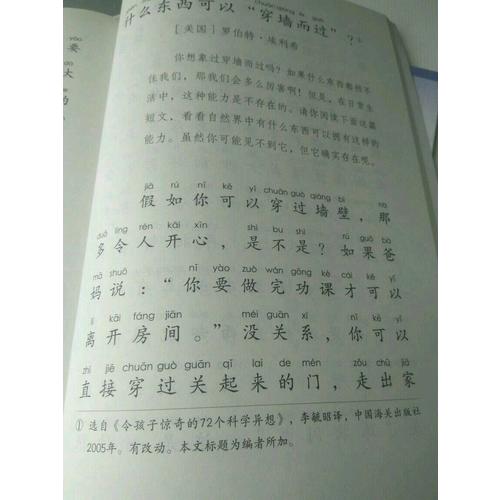 什么东西可以“穿墙而过”?①
[美国] 罗伯特·埃利希
你想象过穿墙而过吗?如果什么东西都挡不
住我们,那我们会多么厉害啊!但是,在日常生
活中,这种能力是不存在的。请你阅读下面这篇
短文,看看自然界中有什么东西可以拥有这样的
能力。虽然你可能见不到它,但它确实存在呢。
jiǎ rú nǐ kě yǐ chuān guò qiáng bì nà
假如你可以穿过墙壁,那
duō lìng rén kāi xīn shì bu shì rú guǒ bà
多令人开心,是不是?如果爸
mā shuō nǐ yào zuò wán gōng kè cái kě yǐ
妈说:“你要做完功课才可以
lí kāi fáng jiān méi guān xi nǐ kě yǐ
离开房间。”没关系,你可以
zhí jiē chuān guò guān qǐ lai de mén zǒu chū jiā
直接穿过关起来的门,走出家
① 选自《令孩子惊奇的72个科学异想》,李毓昭译,中国海关出版社
2005年。有改动。本文标题为编者所加。
要
大
的